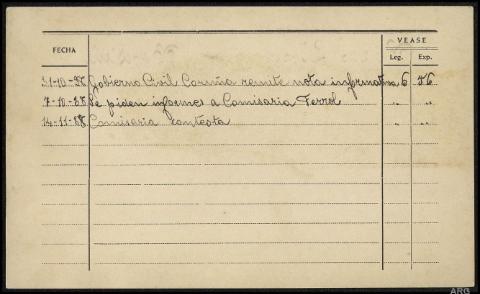 VEASE
FECHA
Leg. Exp.
Gobierno Civil Coruña remite nota informativa 6 76
7-10-58 Se piden informes a Comisaria Ferrol " "
14-11-58 Comisaria contesta
ARG